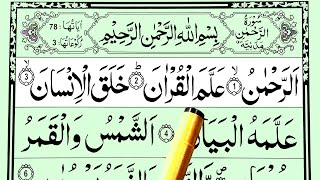 سُورَةُ الرَّحْمٰنِ مَدَنِيَّة
بِسْمِ اللّٰهِ الرَّحْمٰنِ الرَّحِيْمِ
اٰيَاتُهَا: 78
رُكُوْعَاتُهَا: 3
اَلرَّحْمٰنُ ۙ‏﴿1﴾ عَلَّمَ الْقُرْاٰنَ ؕ‏﴿2﴾ خَلَقَ الْاِنْسَانَ ۙ‏﴿3﴾
عَلَّمَهُ الْبَيَانَ ﴿4﴾ اَلشَّمْسُ وَالْقَمَرُ